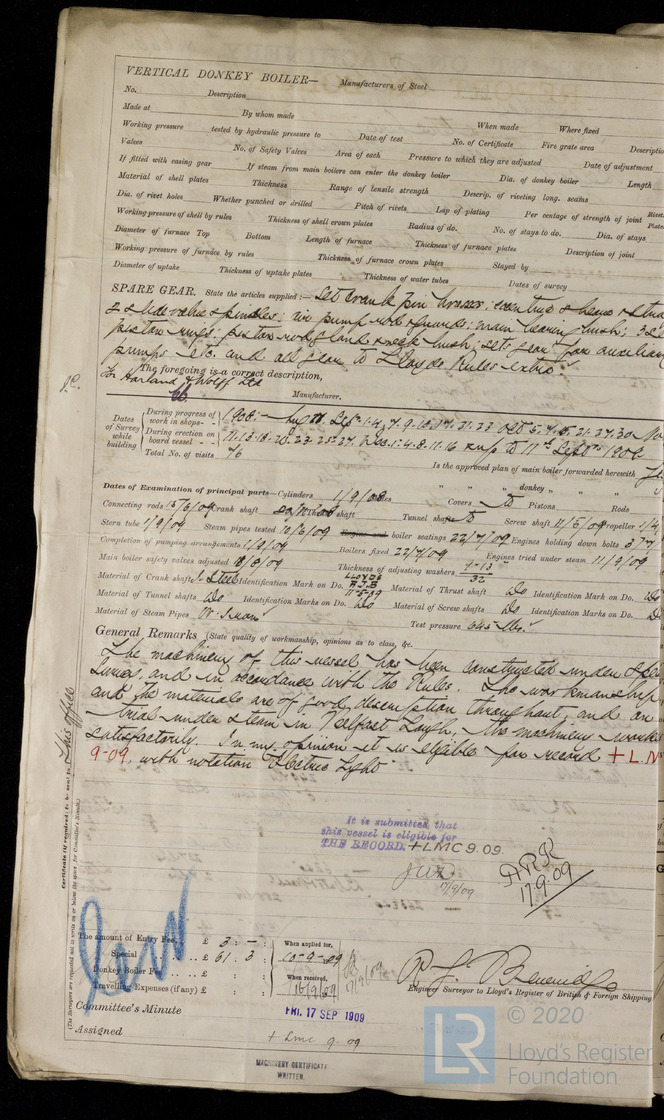 VERTICAL DONKEY BOILER— Manufacturers of Steel
No. Description
Made at By whom made When made Where fixed
Working pressure tested by hydraulic pressure to Date of test No. of Certificate Fire grate area Descriptio
Valves No. of Safety Valves Area of each Pressure to which they are adjusted Date of adjustment
If fitted with easing gear If steam from main boilers can enter the donkey boiler Dia. of donkey boiler Length
Material of shell plates Thickness Range of tensile strength Descrip. of riveting long. seams
Dia. of rivet holes Whether punched or drilled Pitch of rivets Lap of plating Per centage of strength of joint Rivets
Plates
Working pressure of shell by rules Thickness of shell crown plates Radius of do. No. of stays to do. Dia. of stays
Diameter of furnace Top Bottom Length of furnace Thickness of furnace plates Description of joint
Working pressure of furnace by rules Thickness of furnace crown plates Stayed by
Diameter of uptake Thickness of uptake plates Thickness of water tubes Dates of survey
SPARE GEAR. State the articles supplied:— Set crank pin brasses;
& slide valve spindles; air pump rod & guards; main bearing bush;
piston rings; piston rod gland & neck bush; sets gear for auxiliary
pumps etc. and all gear to Lloyds Rules extra
The foregoing is a correct description,
For Harland & Wolff Ltd
Manufacturer.
Dates of Survey while building
During progress of work in shops - - 1908
During erection on board vessel - - 11.13.18.20.23.25.27. Dec.1.4.8.11.16 & up to 11th Septr 1909
Total No. of visits 76
Is the approved plan of main boiler forwarded herewith Ye
" " donkey " " "
Dates of Examination of principal parts—Cylinders 1/9/08 Slides Covers do Pistons Rods
Connecting rods 15/6/09 Crank shaft Thrust shaft Tunnel shafts do Screw shaft 11/5/09 Propeller 1/4
Stern tube 1/9/09 Steam pipes tested 10/6/09 Engine and boiler seatings 22/7/09 Engines holding down bolts 3/7
Completion of pumping arrangements 1/9/09 Boilers fixed 22/7/09 Engines tried under steam 11/9/09
Main boiler safety valves adjusted 18/8/09 Thickness of adjusting washers 9-13/32
Material of Crank shaft S. Steel Identification Mark on Do. LLOYDS RJB 11-5-09 Material of Thrust shaft Do Identification Mark on Do. Do
Material of Tunnel shafts Do Identification Marks on Do. Do Material of Screw shafts Do Identification Marks on Do. D
Material of Steam Pipes Test pressure 645 lbs.
General Remarks (State quality of workmanship, opinions as to class, &c.
The machinery of this vessel has been constructed under Spe
Survey, and in accordance with the Rules. The workmanship
and the materials are of good description throughout, and on
trial under steam in Belfast Lough, the machinery worke
satisfactorily. In my opinion it is eligible for record + L.M
9-09, with notation Electric Light
Certificate (if required) to be sent to this office
(The Surveyors are requested not to write on or below the space for Committee's Minute.)
It is submitted that
this vessel is eligible for
THE RECORD. + LMC 9.09.
17/9/09
17.9.09
The amount of Entry Fee . . £ 3 : – : When applied for,
Special . . . £ 61 : 3 : 10-9-09
Donkey Boiler Fee . . . £ : : When received,
Travelling Expenses (if any) £ : : 16/9/09
17/9/09
Engineer Surveyor to Lloyd's Register of British & Foreign Shipping
Committee's Minute FRI. 17 SEP 1909
Assigned + Lmc 9-09
MACHINERY CERTIFICATE
WRITTEN.
LR
© 2020
Lloyd's Register
Foundation